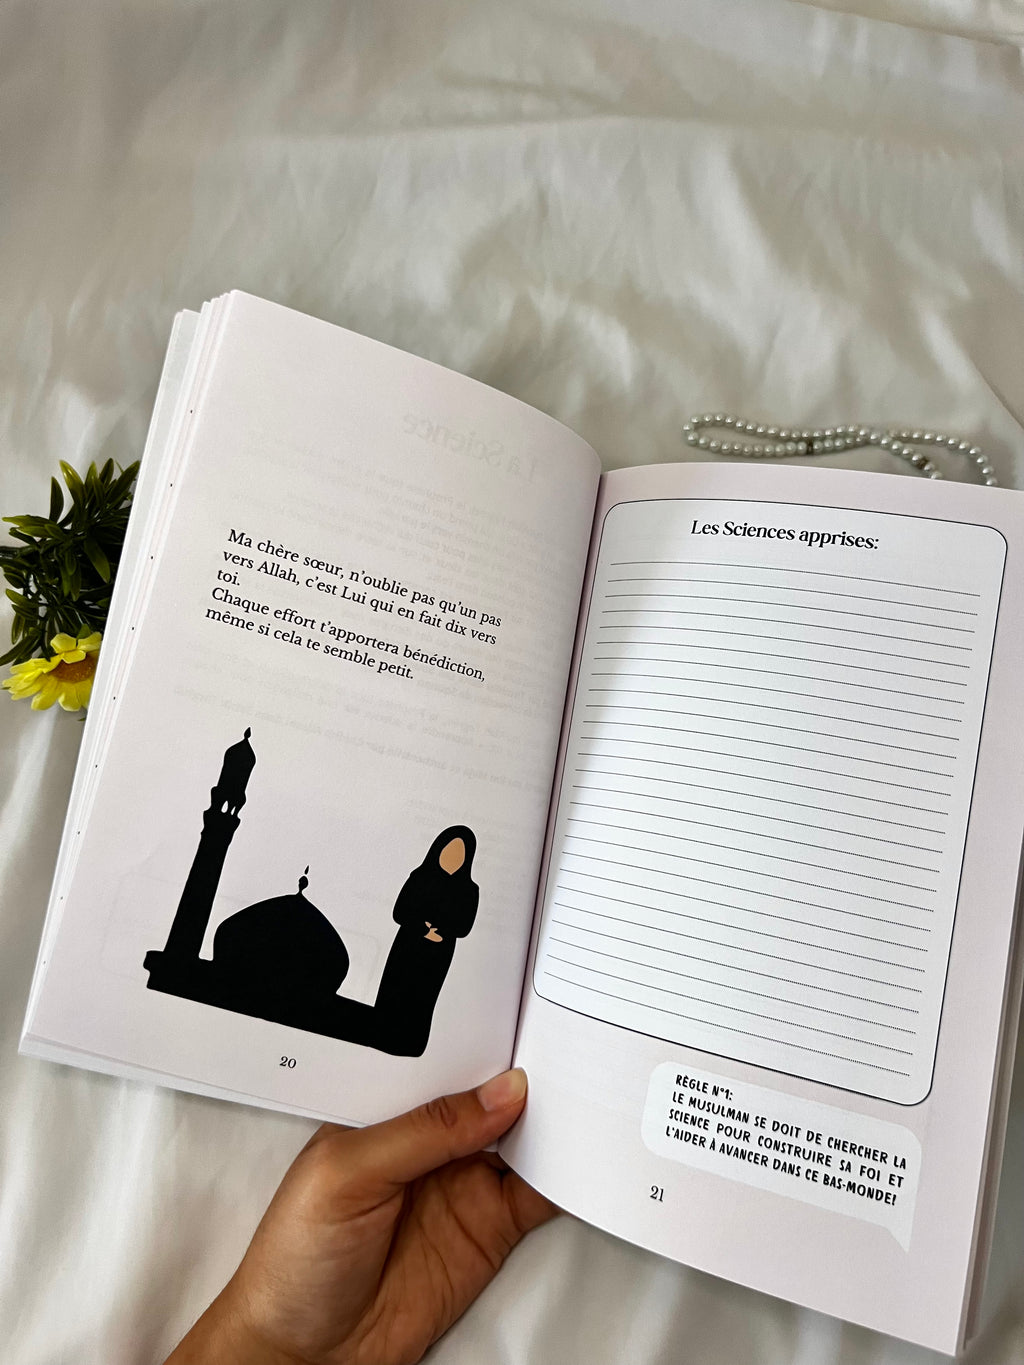 Ma chère sœur, n'oublie pas qu'un pas
vers Allah, c'est Lui qui en fait dix vers
toi.
Chaque effort t'apportera bénédiction,
même si cela te semble petit.
20
Les Sciences apprises:
RÈGLE N°1:
LE MUSULMAN SE DOIT DE CHERCHER LA
SCIENCE POUR CONSTRUIRE SA FOI ET
L'AIDER À AVANCER DANS CE BAS-MONDE!
21